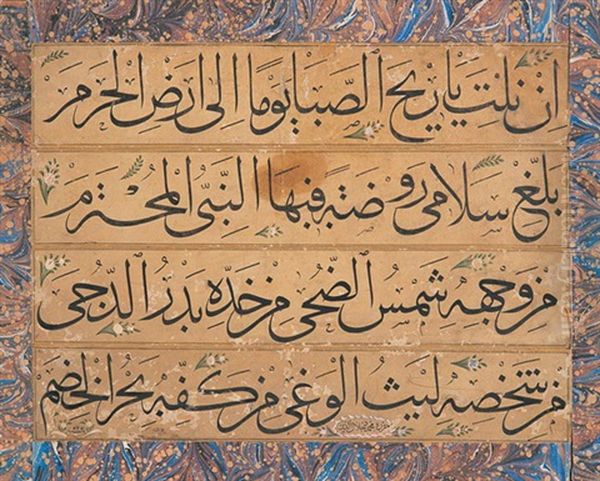 ان نلت يا ريح الصبا يوما الى ارض الحرم
بلغ سلامي روضة فيها النبي المحترم
من وجهه شمس الضحى من خده بدر الدجى
من شخصه ليث الوغى من كفه بحر الخضم